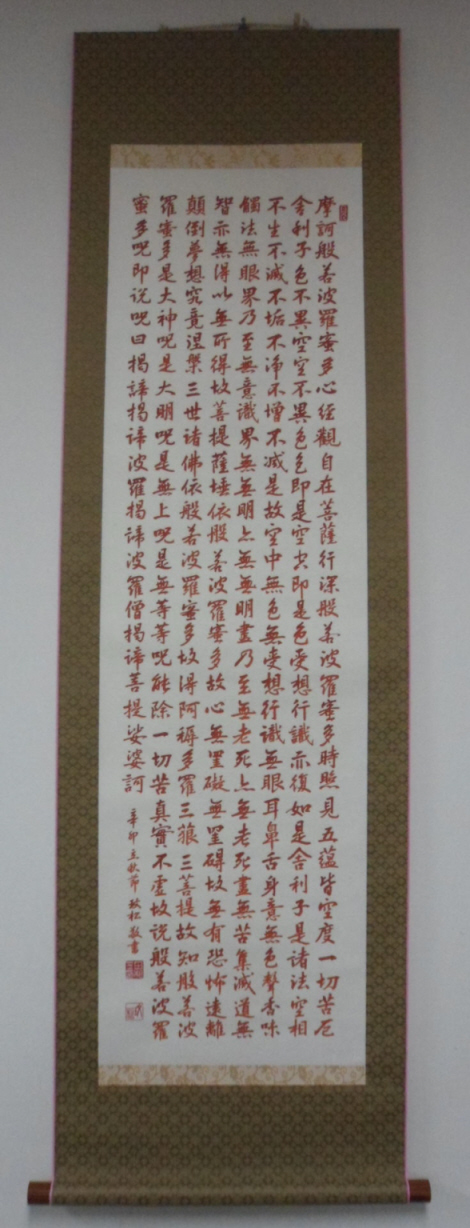 摩訶般若波羅蜜多心经觀自在菩薩行深般若波羅蜜多時照見五蕴皆空度一切苦厄
舍利子色不異空空不異色色即是空空即是色受想行識亦復如是舍利子是諸法空相
不生不滅不垢不净不增不减是故空中無色無受想行識無眼耳鼻舌身意無色聲香味
觸法無眼界乃至無意識界無無明亦無無明盡乃至無老死亦無老死盡無苦集滅道無
智亦無得以無所得故菩提薩埵依般若波羅蜜多故心無罣礙無罣碍故無有恐怖遠離
顛倒夢想究竟涅槃三世諸佛依般若波羅蜜多故得阿耨多羅三藐三菩提故知般若波
羅蜜多是大神呪是大明呪是無上呪是無等等呪能除一切苦真實不虛故说般若波羅
蜜多呪即说呪曰揭諦揭諦波羅揭諦波羅僧揭諦菩提娑婆訶 辛卯立秋節 松敬書